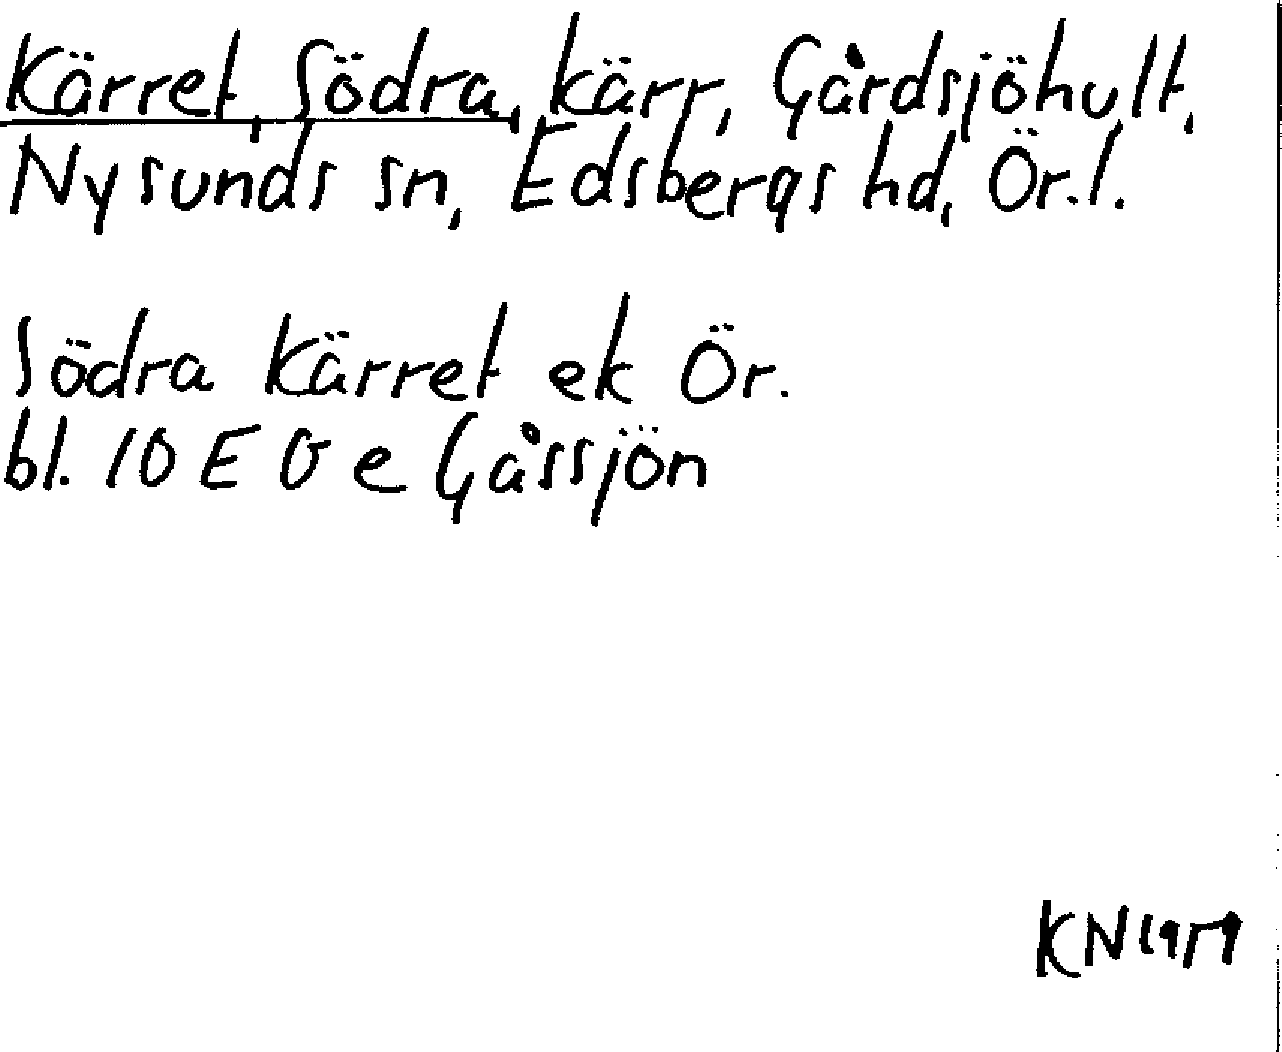 Kärret, Södra, kärr, Gårdsjöhult,
Nysunds sn, Edsbergs hd, Ör.l.
Södra Kärret ek Ör.
bl. 10 E 0 e Gåssjön
KN 1959